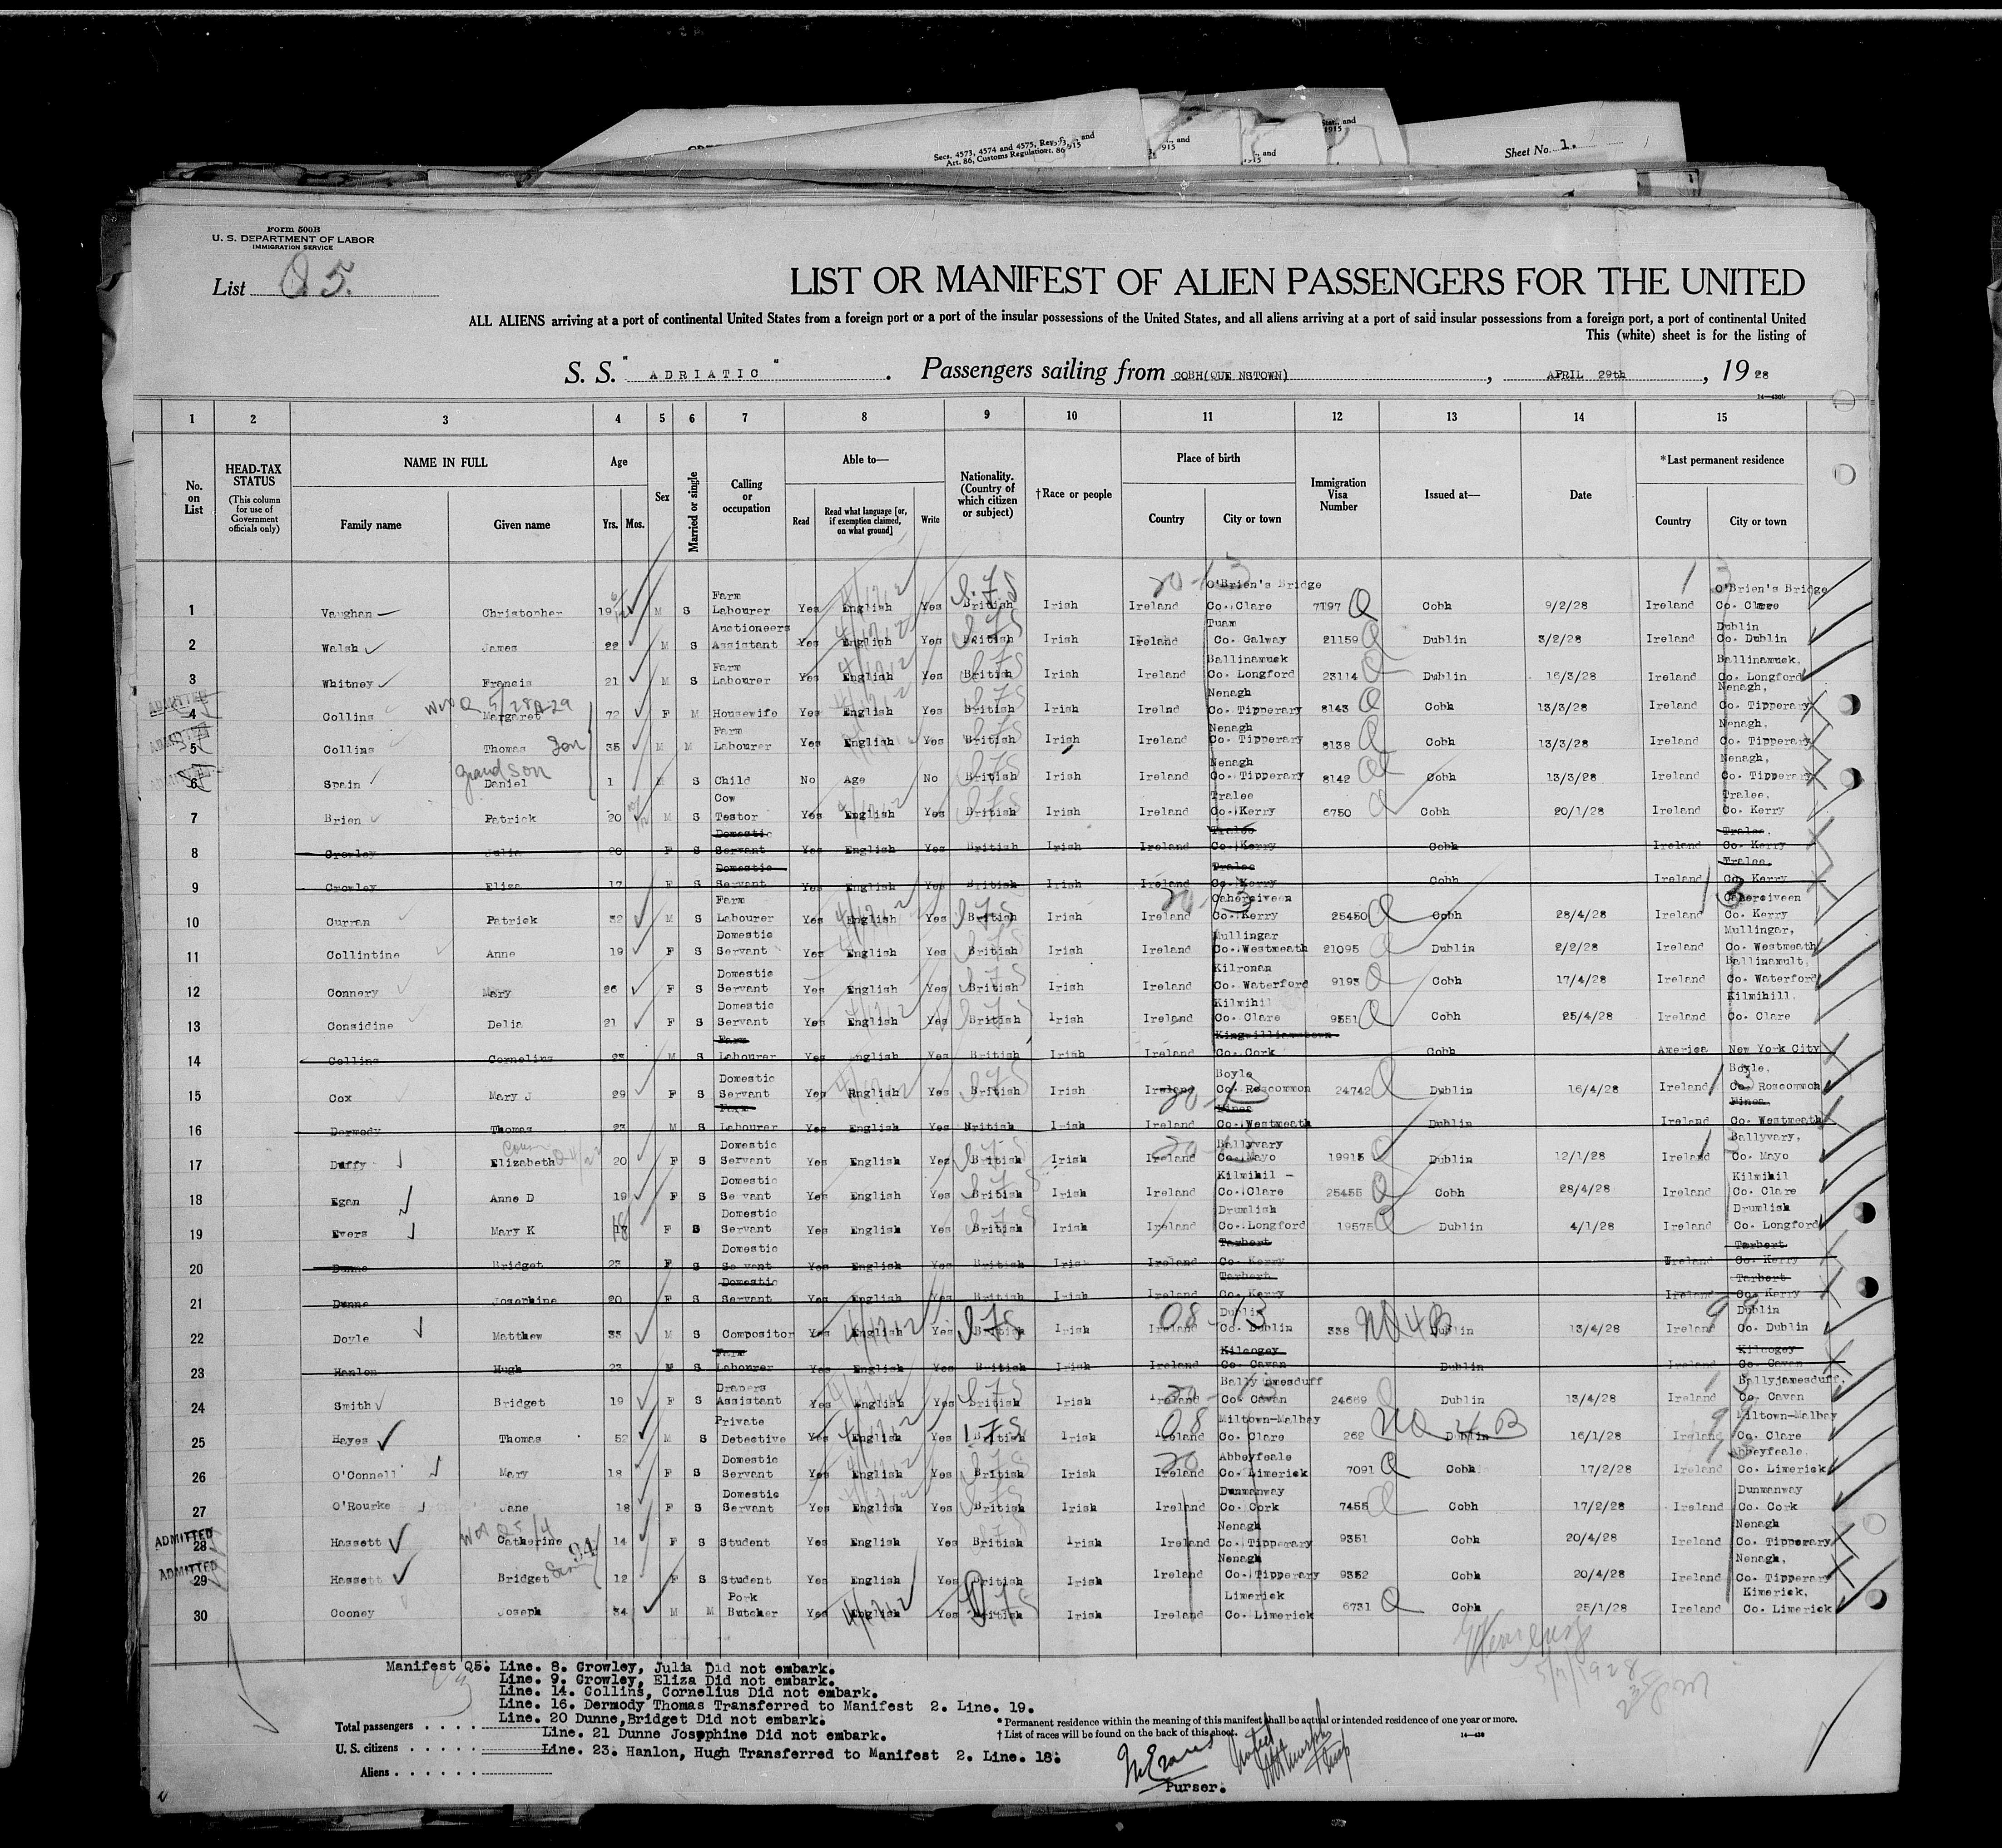 Secs. 4573, 4574 and 4575, Rev. and
Art. 86, Customs Regulations 1915
Sheet No. 1.
Form 500B
U. S. DEPARTMENT OF LABOR
IMMIGRATION SERVICE
List Q 5.
LIST OR MANIFEST OF ALIEN PASSENGERS FOR THE UNITED
ALL ALIENS arriving at a port of continental United States from a foreign port or a port of the insular possessions of the United States, and all aliens arriving at a port of said insular possessions from a foreign port, a port of continental United
This (white) sheet is for the listing of
S. S. "ADRIATIC". Passengers sailing from COBH(QUE NSTOWN), APRIL 29th, 1928
1 2 3 4 5 6 7 8 9 10 11 12 13 14 15
No. on List
HEAD-TAX STATUS (This column for use of Government officials only)
NAME IN FULL Family name Given name
Age Yrs. Mos.
Sex
Married or single
Calling or occupation
Able to— Read Read what language [or, if exemption claimed, on what ground] Write
Nationality. (Country of which citizen or subject)
†Race or people
Place of birth Country City or town
Immigration Visa Number
Issued at—
Date
*Last permanent residence Country City or town
1 Vaughan Christopher 19 M S Farm Labourer Yes English Yes British Irish Ireland O'Brien's Bridge Co. Clare 7197 Cobh 9/2/28 Ireland O'Brien's Bridge Co. Clare
2 Walsh James 22 M S Auctioneers Assistant Yes English Yes British Irish Ireland Tuam Co. Galway 21159 Dublin 3/2/28 Ireland Dublin Co. Dublin
3 Whitney Francis 21 M S Farm Labourer Yes English Yes British Irish Ireland Ballinamuck Co. Longford 23114 Dublin 16/3/28 Ireland Ballinamuck, Co. Longford
ADMITTED 4 Collins Margaret 72 F M Housewife Yes English Yes British Irish Irelnd Nenagh Co. Tipperary 8143 Cobh 13/3/28 Ireland Nenagh, Co. Tipperary
ADMITTED 5 Collins Thomas Son 35 M M Farm Labourer Yes English Yes British Irish Ireland Nenagh Co. Tipperary 8138 Cobh 13/3/28 Ireland Nenagh, Co. Tipperary
ADMITTED 6 Spain Daniel grandson 1 M S Child No Age No British Irish Ireland Nenagh Co. Tipperary 8142 Cobh 13/3/28 Ireland Nenagh, Co. Tipperary
7 Brien Patrick 20 M S Cow Testor Yes English Yes British Irish Ireland Tralee Co. Kerry 6750 Cobh 20/1/28 Ireland Tralee, Co. Kerry
8 Crowley Julia 20 F S Domestic Servant Yes English Yes British Irish Ireland Tralee Co. Kerry Cobh Ireland Tralee, Co. Kerry
9 Crowley Eliza 17 F S Domestic Servant Yes English Yes British Irish Ireland Tralee Co. Kerry Cobh Ireland Tralee, Co. Kerry
10 Curran Patrick 32 M S Farm Labourer Yes English Yes British Irish Ireland Caherciveen Co. Kerry 25450 Cobh 28/4/28 Ireland Caherciveen Co. Kerry
11 Collintine Anne 19 F S Domestic Servant Yes English Yes British Irish Ireland Mullingar Co. Westmeath 21095 Dublin 2/2/28 Ireland Mullingar, Co. Westmeath
12 Connery Mary 26 F S Domestic Servant Yes English Yes British Irish Ireland Kilronan Co. Waterford 9193 Cobh 17/4/28 Ireland Ballinamult, Co. Waterford
13 Considine Delia 21 F S Domestic Servant Yes English Yes British Irish Ireland Kilmihil Co. Clare 9551 Cobh 25/4/28 Ireland Kilmihill, Co. Clare
14 Collins Cornelius 23 M S Farm Labourer Yes English Yes British Irish Ireland Kingwilliamstown Co. Cork Cobh America New York City
15 Cox Mary J 29 F S Domestic Servant Yes English Yes British Irish Ireland Boyle Co. Roscommon 24742 Dublin 16/4/28 Ireland Boyle, Co. Roscommon
16 Dermody Thomas 23 M S Farm Labourer Yes English Yes British Irish Ireland Finea Co. Westmeath Dublin Ireland Finea Co. Westmeath
17 Duffy Elizabeth 20 F S Domestic Servant Yes English Yes British Irish Ireland Ballyvary Co. Mayo 19915 Dublin 12/1/28 Ireland Ballyvary, Co. Mayo
18 Egan Anne D 19 F S Domestic Servant Yes English Yes British Irish Ireland Kilmihil - Co. Clare 25455 Cobh 28/4/28 Ireland Kilmihil Co. Clare
19 Evers Mary K 18 F S Domestic Servant Yes English Yes British Irish Ireland Drumlish Co. Longford 19575 Dublin 4/1/28 Ireland Drumlish Co. Longford
20 Dunne Bridget 23 F S Domestic Servant Yes English Yes British Irish Ireland Tarbert Co. Kerry Ireland Tarbert Co. Kerry
21 Dunne Josephine 20 F S Domestic Servant Yes English Yes British Irish Ireland Tarbert Co. Kerry Ireland Tarbert Co. Kerry
22 Doyle Matthew 33 M S Compositor Yes English Yes British Irish Ireland Dublin Co. Dublin 338 NQ 4B Dublin 13/4/28 Ireland Dublin Co. Dublin
23 Hanlon Hugh 23 M S Farm Labourer Yes English Yes British Irish Ireland Kilcogey Co. Cavan Dublin Ireland Kilcogey Co. Cavan
24 Smith Bridget 19 F S Drapers Assistant Yes English Yes British Irish Ireland Ballyjamesduff Co. Cavan 24669 Dublin 13/4/28 Ireland Ballyjamesduff, Co. Cavan
25 Hayes Thomas 52 M S Private Detective Yes English Yes British Irish Ireland Miltown-Malbay Co. Clare 262 NQ 4B Dublin 16/1/28 Ireland Miltown-Malbay Co. Clare
26 O'Connell Mary 18 F S Domestic Servant Yes English Yes British Irish Ireland Abbeyfeale Co. Limerick 7091 Cobh 17/2/28 Ireland Abbeyfeale, Co. Limerick
27 O'Rourke Jane 18 F S Domestic Servant Yes English Yes British Irish Ireland Dunmanway Co. Cork 7455 Cobh 17/2/28 Ireland Dunmanway Co. Cork
ADMITTED 28 Hassett Catherine 14 F S Student Yes English Yes British Irish Ireland Nenagh Co. Tipperary 9351 Cobh 20/4/28 Ireland Nenagh Co. Tipperary
ADMITTED 29 Hassett Bridget 12 F S Student Yes English Yes British Irish Ireland Nenagh Co. Tipperary 9352 Cobh 20/4/28 Ireland Nenagh, Co. Tipperary
30 Cooney Joseph 34 M M Pork Butcher Yes English Yes British Irish Ireland Limerick Co. Limerick 6731 Cobh 25/1/28 Ireland Kimerick, Co. Limerick
Manifest Q5: Line. 8. Crowley, Julia Did not embark.
Line. 9. Crowley, Eliza Did not embark.
Line. 14. Collins, Cornelius Did not embark.
Line. 16. Dermody Thomas Transferred to Manifest 2. Line. 19.
Line. 20 Dunne,Bridget Did not embark.
Line. 21 Dunne Josephine Did not embark.
Line. 23. Hanlon, Hugh Transferred to Manifest 2. Line. 18.
Total passengers
U. S. citizens
Aliens
* Permanent residence within the meaning of this manifest shall be actual or intended residence of one year or more.
† List of races will be found on the back of this sheet.
Purser.